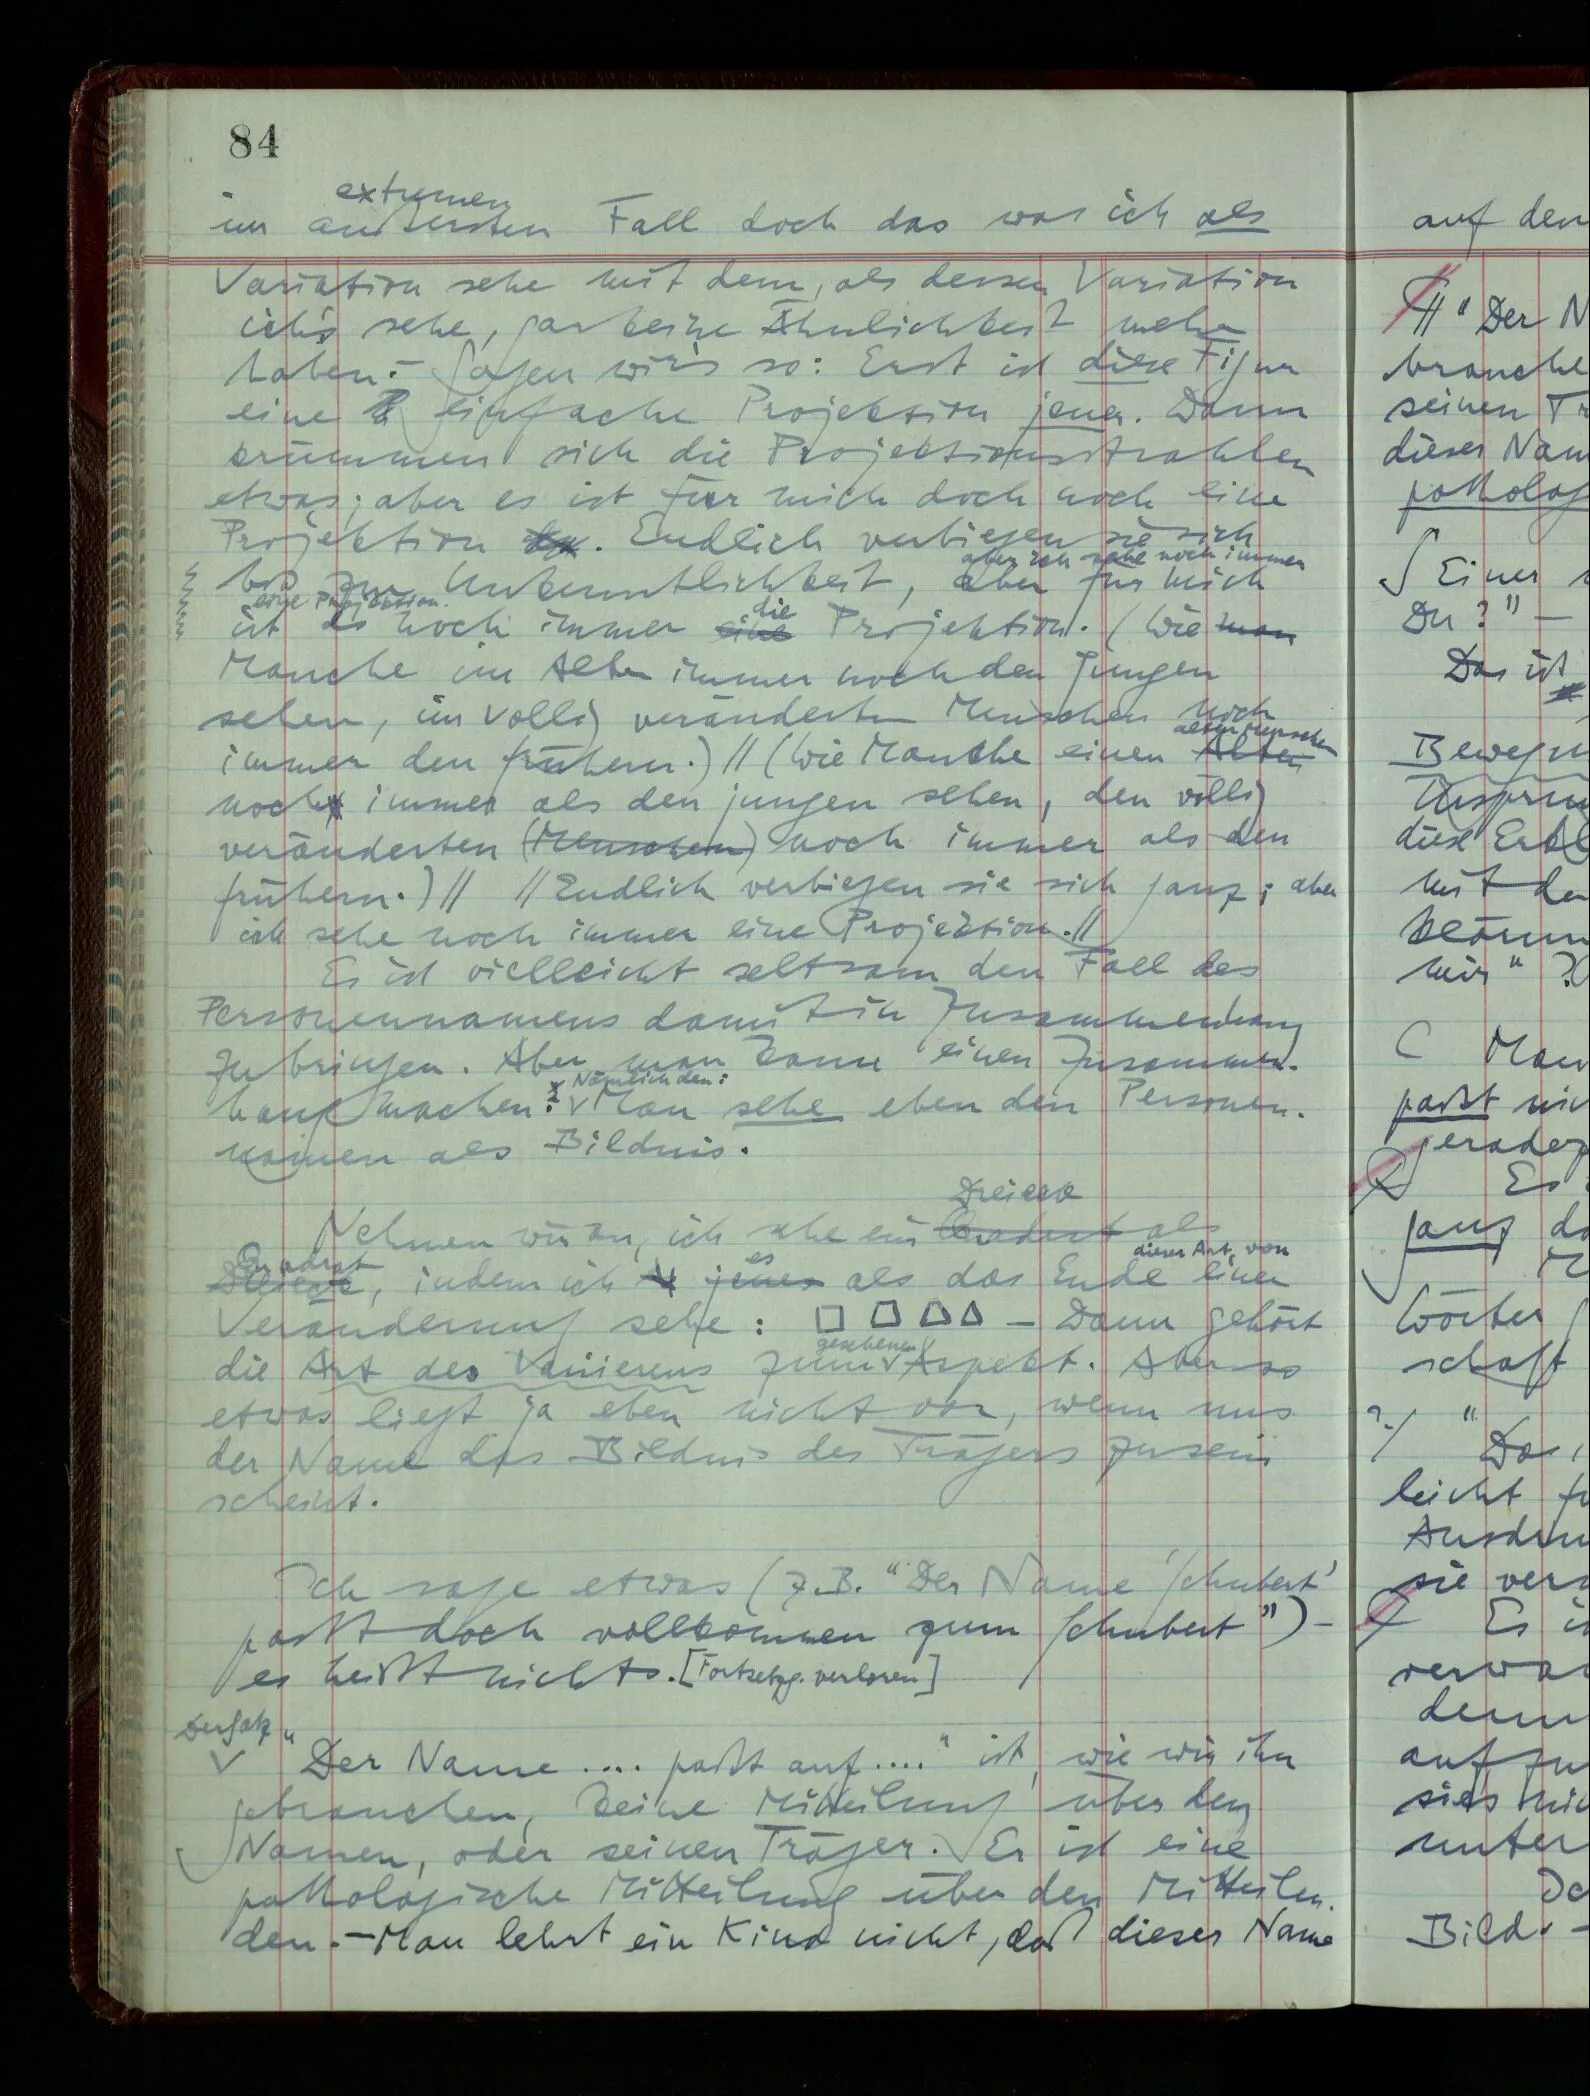 84
extremen
im äußersten Fall doch das was ich als
Variation sehe mit dem, als dessen Variation
ich's sehe, gar keine Ähnlichkeit mehr
haben. – Sagen wir's so: Erst ist diese Figur
eine einfache Projektion jener. Dann
krümmen sich die Projektionsstrahlen
etwas; aber es ist für mich doch noch eine
Projektion. Endlich verbiegen sie sich
aber ich sehe noch immer
bis zur Unkenntlichkeit, aber für mich
eine Projektion. die
ist es noch immer eine Projektion. (Wie man
Manche im Alten immer noch den Jungen
sehen, im völlig veränderten Menschen noch
alten Menschen
immer den frühern.) // (Wie Manche einen Alten
noch immer als den jungen sehen, den völlig
veränderten (Menschen) noch immer als den
frühern.) // // Endlich verbiegen sie sich ganz; aber
ich sehe noch immer eine Projektion. //
Es ist vielleicht seltsam den Fall des
Personennamens damit in Zusammenhang
zu bringen. Aber man kann einen Zusammen-
Nämlich den:
hang machen: Man sehe eben den Personen-
namen als Bildnis.
Dreieck
Nehmen wir an, ich sehe ein Quadrat als
Quadrat es dieser Art von
Dreieck, indem ich jenes als das Ende einer
Veränderung sehe: – Dann gehört
gesehenen
die Art des Variierens zum Aspekt. Aber so
etwas liegt ja eben nicht vor, wenn uns
der Name das Bildnis des Trägers zu sein
scheint.
Ich sage etwas (z.B. "Der Name 'Schubert'
paßt doch vollkommen zum Schubert") –
es heißt nichts. [Fortsetzg. verloren]
Der Satz
"Der Name .... paßt auf ...." ist, wie wir ihn
gebrauchen, keine Mitteilung über den
Namen, oder seinen Träger. Er ist eine
pathologische Mitteilung über den Mitteilen-
den. – Man lehrt ein Kind nicht, daß dieser Name
auf den
"Der N
brauche
seinen Tr
dieser Nam
patholog
Einer
Du?" –
Das ist
Bewegu
Urspru
diese Erkl
mit de
mir" ?
Man
paßt nic
geradez
Es
ganz do
Wörter
schaft
?/ "Das
leicht
Ausdru
sie vers
Es is
verwa
denn
auf zu
unter
Bild. –